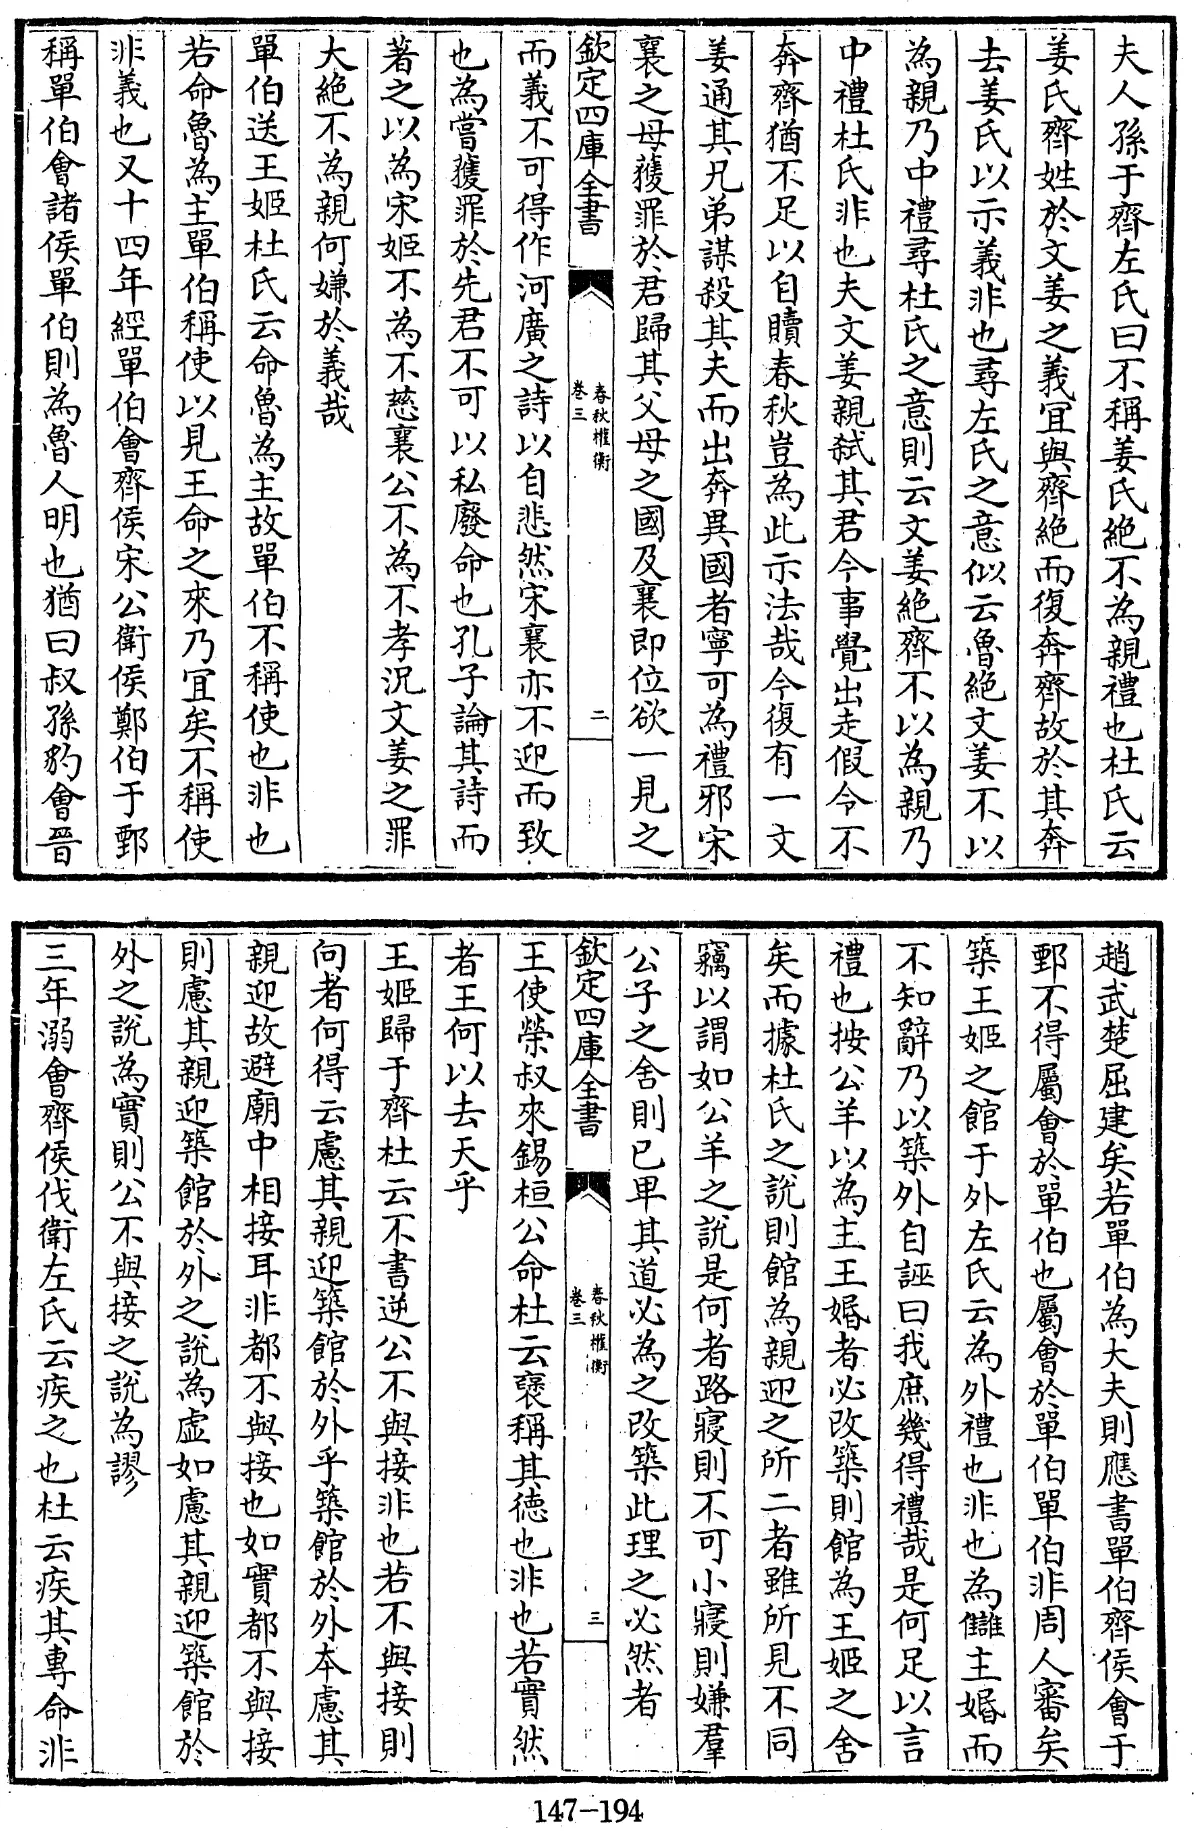 夫人孫于齊左氏曰不稱姜氏絶不為親禮也杜氏云
姜氏齊姓於文姜之義宜與齊絶而復奔齊故於其奔
去姜氏以示義非也尋左氏之意似云魯絶文姜不以
為親乃中禮尋杜氏之意則云文姜絶齊不以為親乃
中禮杜氏非也夫文姜親弑其君今事覺出走假令不
奔齊猶不足以自贖春秋豈為此示法哉今復有一文
姜通其兄弟謀殺其夫而出奔異國者寧可為禮邪宋
襄之母獲罪於君歸其父母之國及襄即位欲一見之
欽定四庫全書
春秋權衡
卷三
二
而義不可得作河廣之詩以自悲然宋襄亦不迎而致
也為嘗獲罪於先君不可以私廢命也孔子論其詩而
著之以為宋姬不為不慈襄公不為不孝況文姜之罪
大絶不為親何嫌於義哉
單伯送王姬杜氏云命魯為主故單伯不稱使也非也
若命魯為主單伯稱使以見王命之來乃宜矣不稱使
非義也又十四年經單伯會齊侯宋公衛侯鄭伯于鄄
稱單伯會諸侯單伯則為魯人明也猶曰叔孫豹會晉
趙武楚屈建矣若單伯為大夫則應書單伯齊侯會于
鄄不得屬會於單伯也屬會於單伯單伯非周人審矣
築王姬之館于外左氏云為外禮也非也為讎主婚而
不知辭乃以築外自誣曰我庶幾得禮哉是何足以言
禮也按公羊以為主王婚者必改築則館為王姬之舍
矣而據杜氏之說則館為親迎之所二者雖所見不同
竊以謂如公羊之說是何者路寢則不可小寢則嫌羣
公子之舍則已卑其道必為之改築此理之必然者
欽定四庫全書
春秋權衡
卷三
三
王使榮叔來錫桓公命杜云褒稱其德也非也若實然
者王何以去天乎
王姬歸于齊杜云不書逆公不與接非也若不與接則
向者何得云慮其親迎築館於外乎築館於外本慮其
親迎故避廟中相接耳非都不與接也如實都不與接
則慮其親迎築館於外之說為虛如慮其親迎築館於
外之說為實則公不與接之說為謬
三年溺會齊侯伐衛左氏云疾之也杜云疾其專命非
147-194